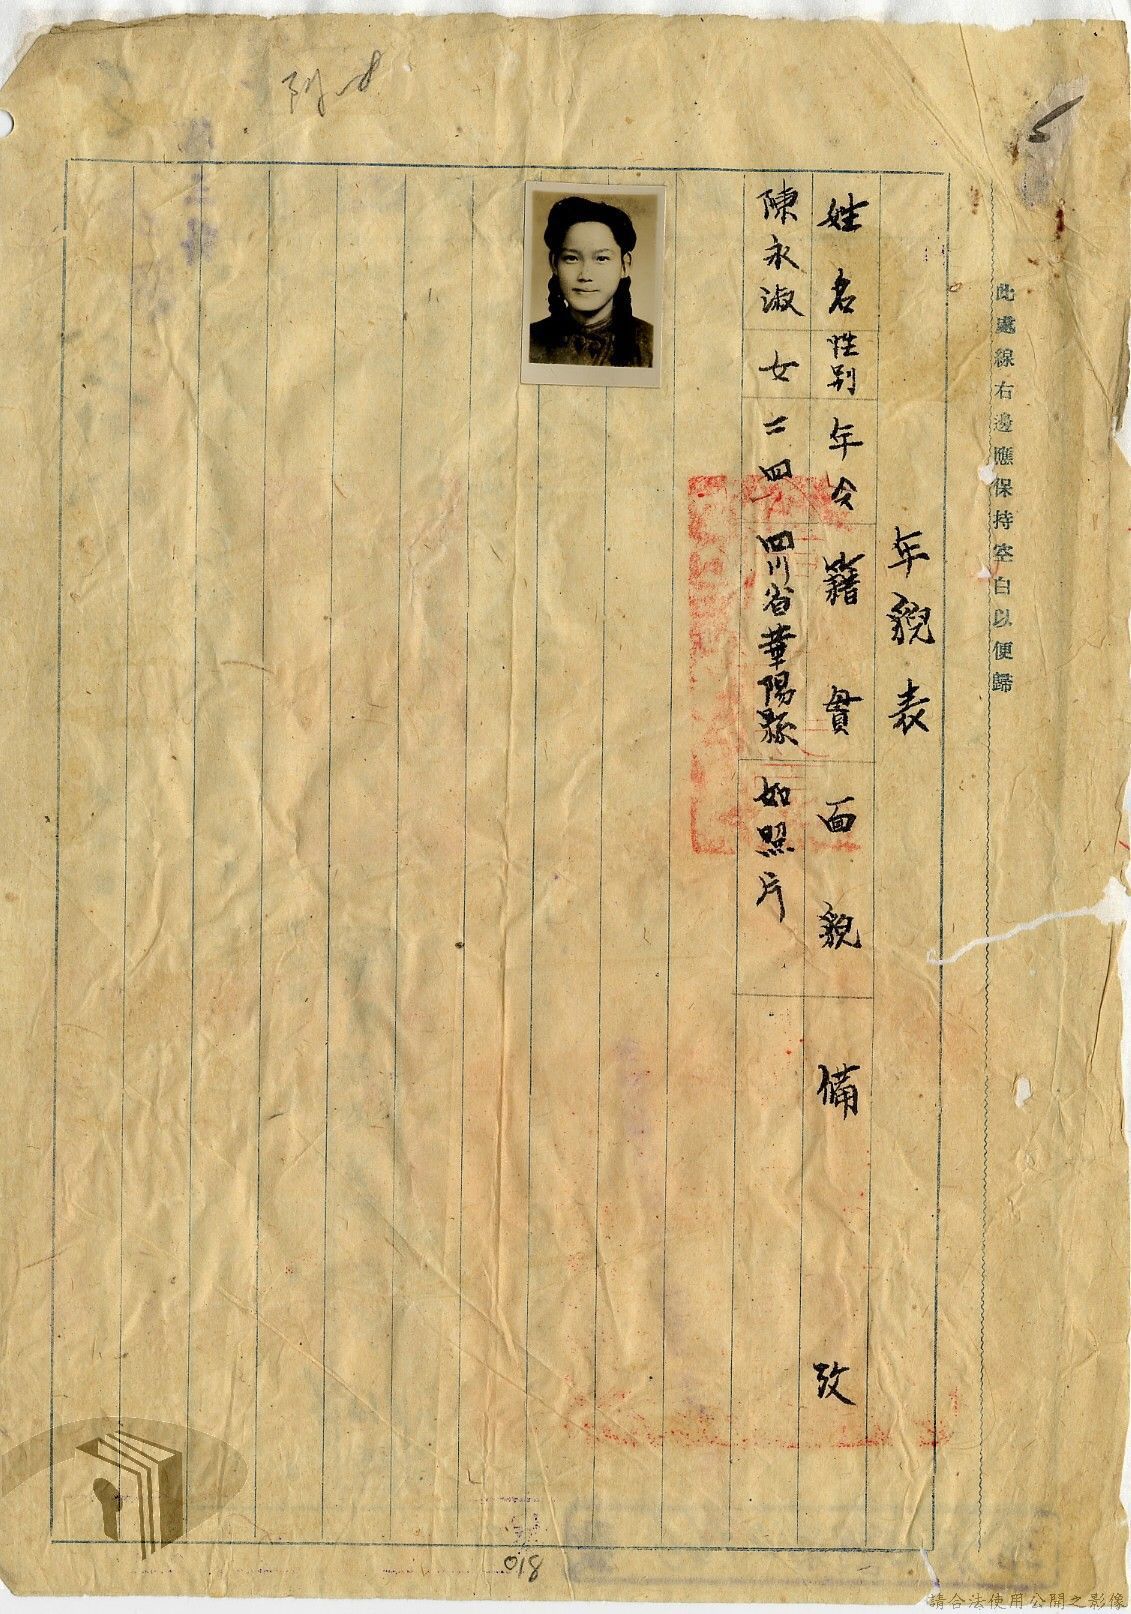 此處線右邊應保持空白以便歸
年貌表
姓名 性別 年令 籍貫 面貌 備攷
陳永淑 女 二四 四川省華陽縣 如照片
附
018
請合法使用公開之影像